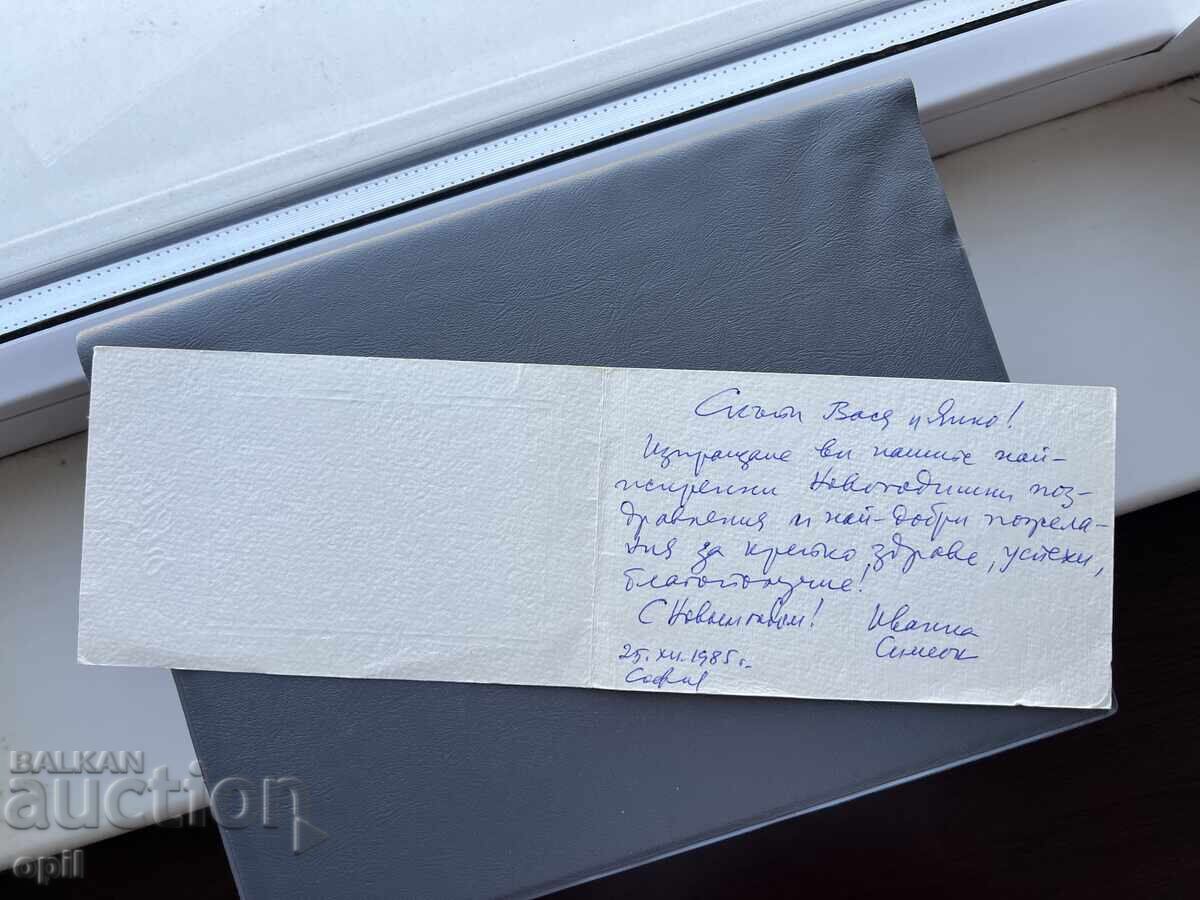 Скъпи Вася и Янко!
Изпращаме ви нашите най-
искренни Новогодишни поз-
дравления и най-добри пожела-
ния за крепко здраве, успехи,
благополучие!
С Новыим годом! Иванка
Симеон
25.XII.1985г.
София
BALKAN
auction
opil